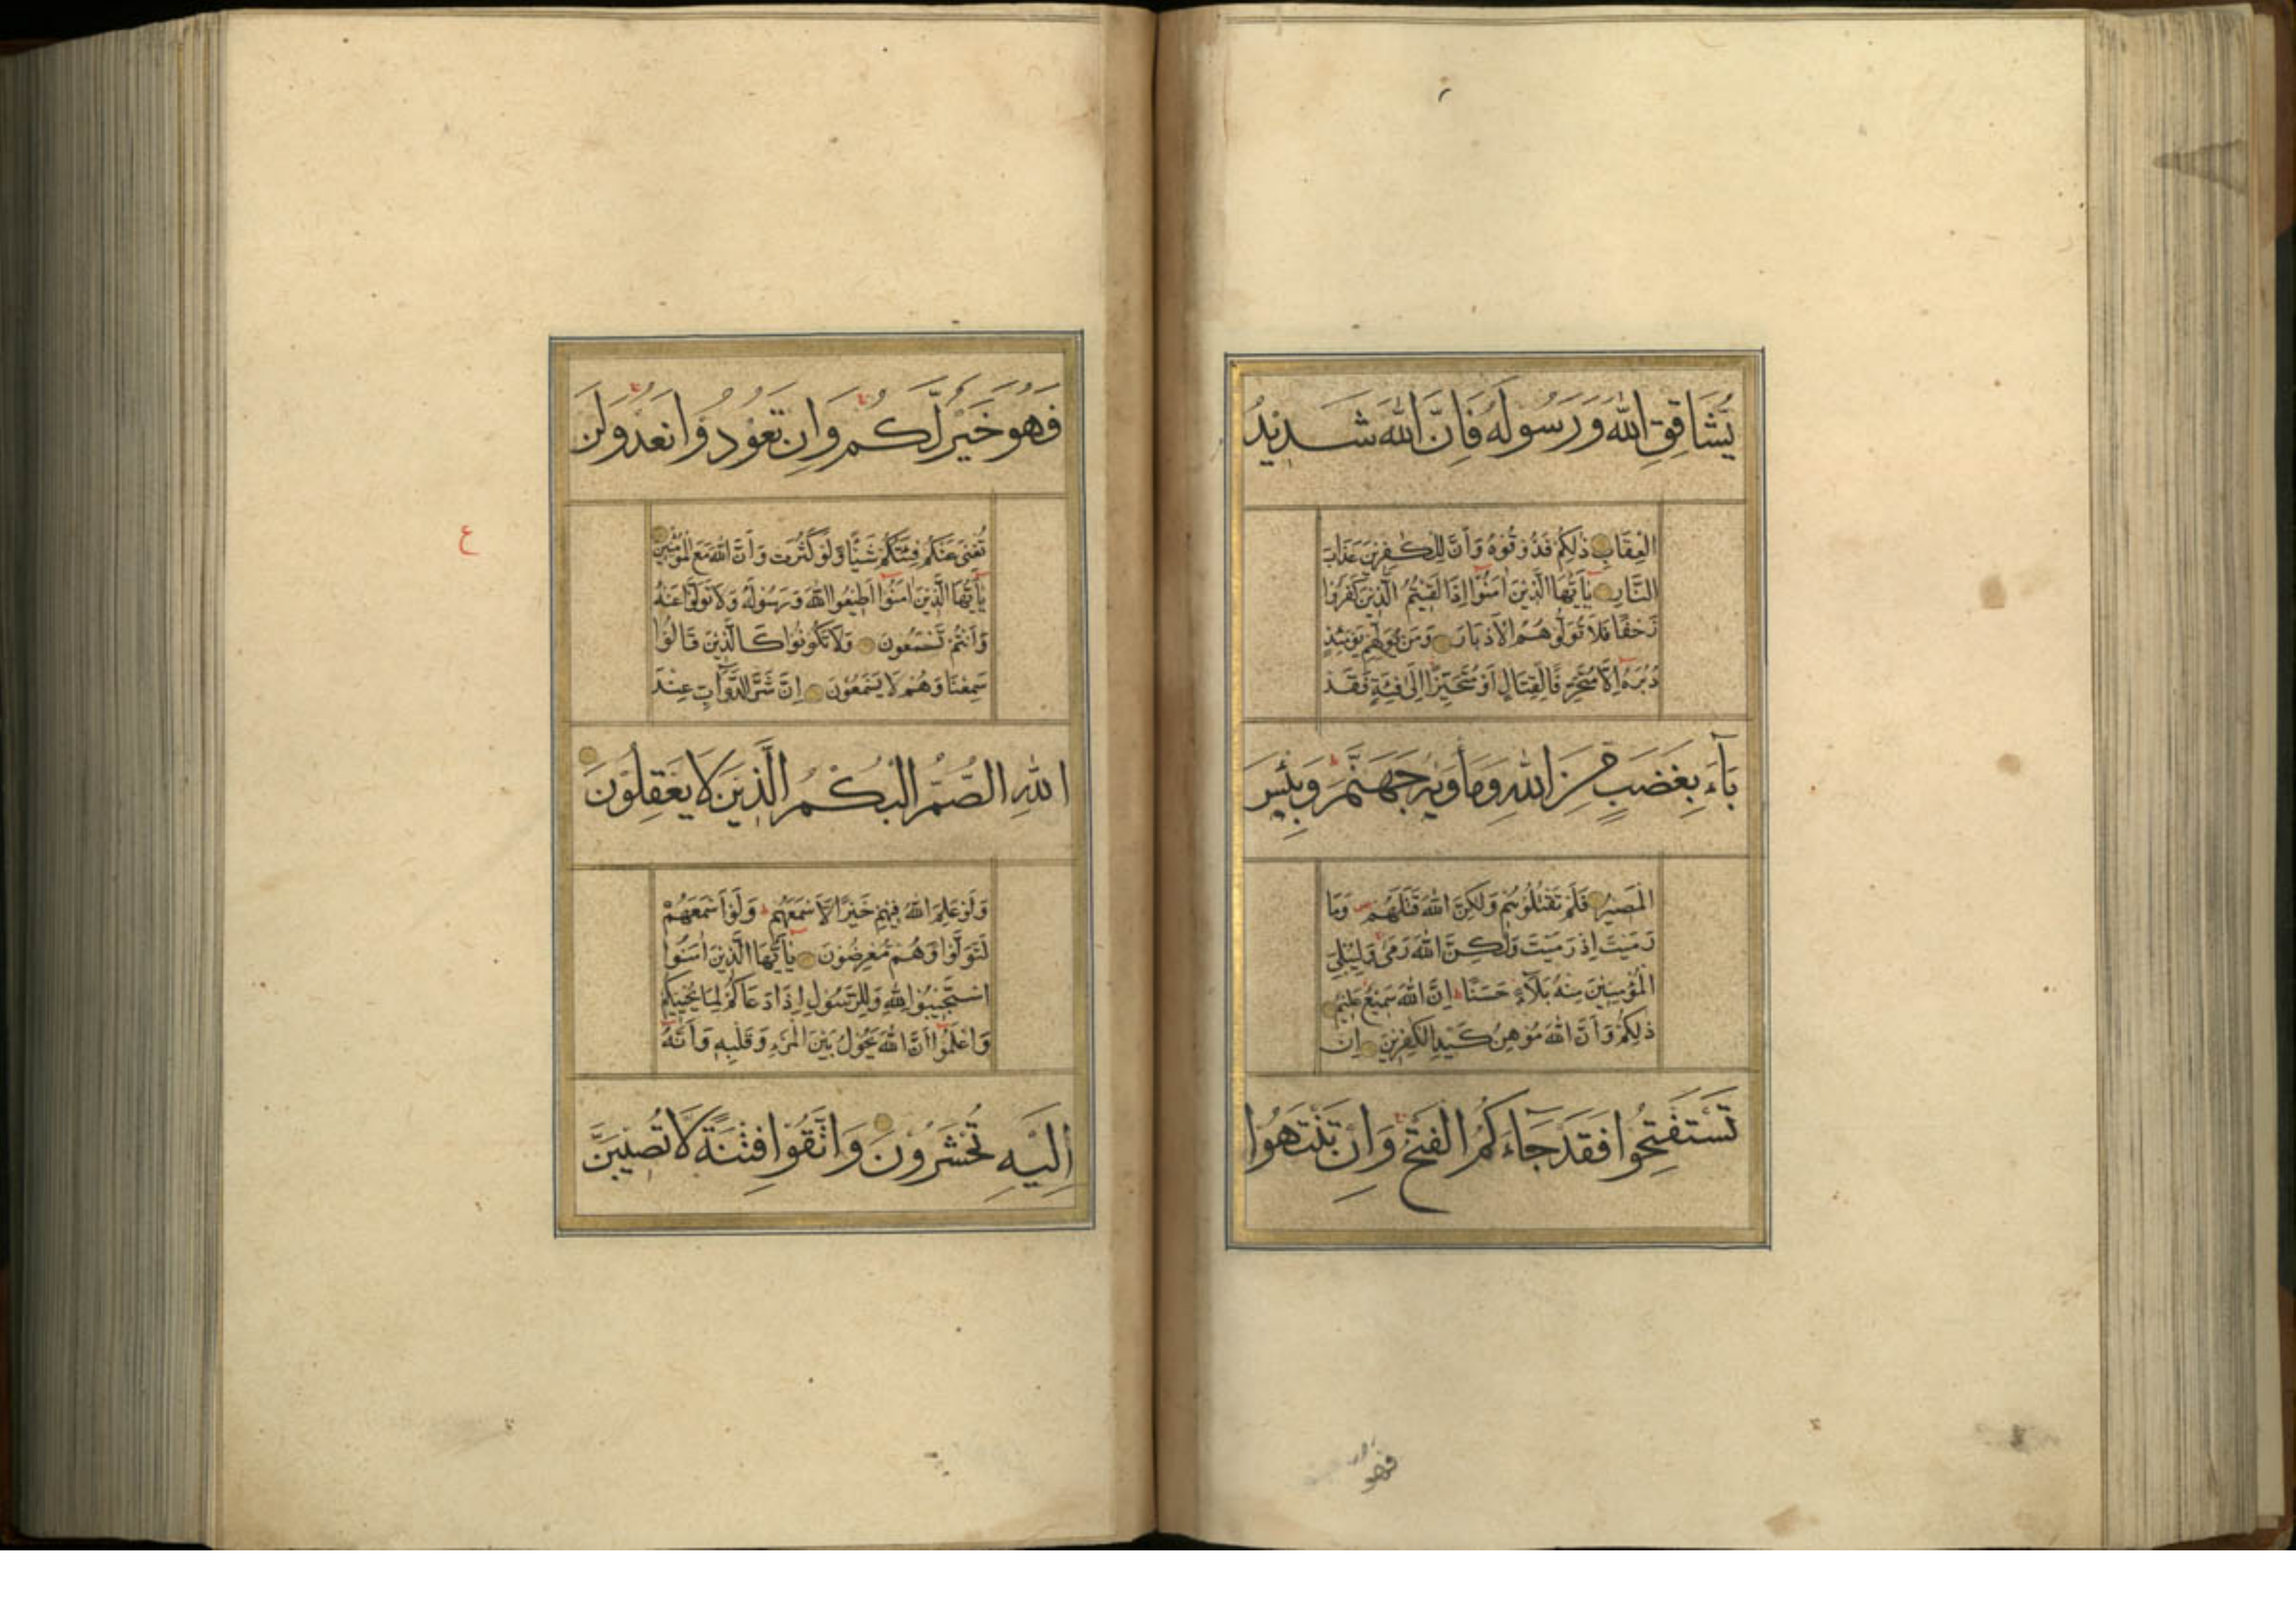 يُشَاقِقِ اللّٰهَ وَرَسُولَهُ فَاِنَّ اللّٰهَ شَدِيدُ
الْعِقَابِ ذٰلِكُمْ فَذُوقُوهُ وَاَنَّ لِلْكٰفِرِينَ عَذَابَ
النَّارِ يٰٓاَيُّهَا الَّذِينَ اٰمَنُوٓا اِذَا لَقِيتُمُ الَّذِينَ كَفَرُوا
زَحْفًا فَلَا تُوَلُّوهُمُ الْاَدْبَارَ وَمَنْ يُوَلِّهِمْ يَوْمَئِذٍ
دُبُرَهُ اِلَّا مُتَحَرِّفًا لِقِتَالٍ اَوْ مُتَحَيِّزًا اِلٰى فِئَةٍ فَقَدْ
بَآءَ بِغَضَبٍ مِنَ اللّٰهِ وَمَأْوٰيهُ جَهَنَّمُ وَبِئْسَ
الْمَصِيرُ فَلَمْ تَقْتُلُوهُمْ وَلٰكِنَّ اللّٰهَ قَتَلَهُمْ وَمَا
رَمَيْتَ اِذْ رَمَيْتَ وَلٰكِنَّ اللّٰهَ رَمٰى وَلِيُبْلِيَ
الْمُؤْمِنِينَ مِنْهُ بَلَآءً حَسَنًا اِنَّ اللّٰهَ سَمِيعٌ عَلِيمٌ
ذٰلِكُمْ وَاَنَّ اللّٰهَ مُوهِنُ كَيْدِ الْكٰفِرِينَ اِنْ
تَسْتَفْتِحُوا فَقَدْ جَآءَكُمُ الْفَتْحُ وَاِنْ تَنْتَهُوا
فهو
فَهُوَ خَيْرٌ لَكُمْ وَاِنْ تَعُودُوا نَعُدْ وَلَنْ
تُغْنِيَ عَنْكُمْ فِئَتُكُمْ شَيْئًا وَلَوْ كَثُرَتْ وَاَنَّ اللّٰهَ مَعَ الْمُؤْمِنِينَ
يٰٓاَيُّهَا الَّذِينَ اٰمَنُوٓا اَطِيعُوا اللّٰهَ وَرَسُولَهُ وَلَا تَوَلَّوْا عَنْهُ
وَاَنْتُمْ تَسْمَعُونَ وَلَا تَكُونُوا كَالَّذِينَ قَالُوا
سَمِعْنَا وَهُمْ لَا يَسْمَعُونَ اِنَّ شَرَّ الدَّوَآبِّ عِنْدَ
اللّٰهِ الصُّمُّ الْبُكْمُ الَّذِينَ لَا يَعْقِلُونَ
وَلَوْ عَلِمَ اللّٰهُ فِيهِمْ خَيْرًا لَاَسْمَعَهُمْ وَلَوْ اَسْمَعَهُمْ
لَتَوَلَّوْا وَهُمْ مُعْرِضُونَ يٰٓاَيُّهَا الَّذِينَ اٰمَنُوا
اسْتَجِيبُوا لِلّٰهِ وَلِلرَّسُولِ اِذَا دَعَاكُمْ لِمَا يُحْيِيكُمْ
وَاعْلَمُوٓا اَنَّ اللّٰهَ يَحُولُ بَيْنَ الْمَرْءِ وَقَلْبِهِ وَاَنَّهُ
اِلَيْهِ تُحْشَرُونَ وَاتَّقُوا فِتْنَةً لَا تُصِيبَنَّ
ع